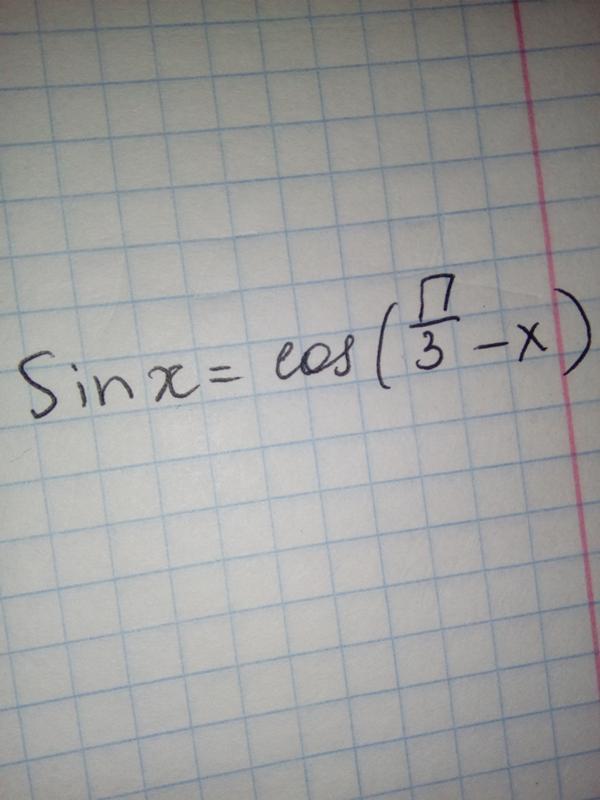 Sin x = cos(П/3 - x)